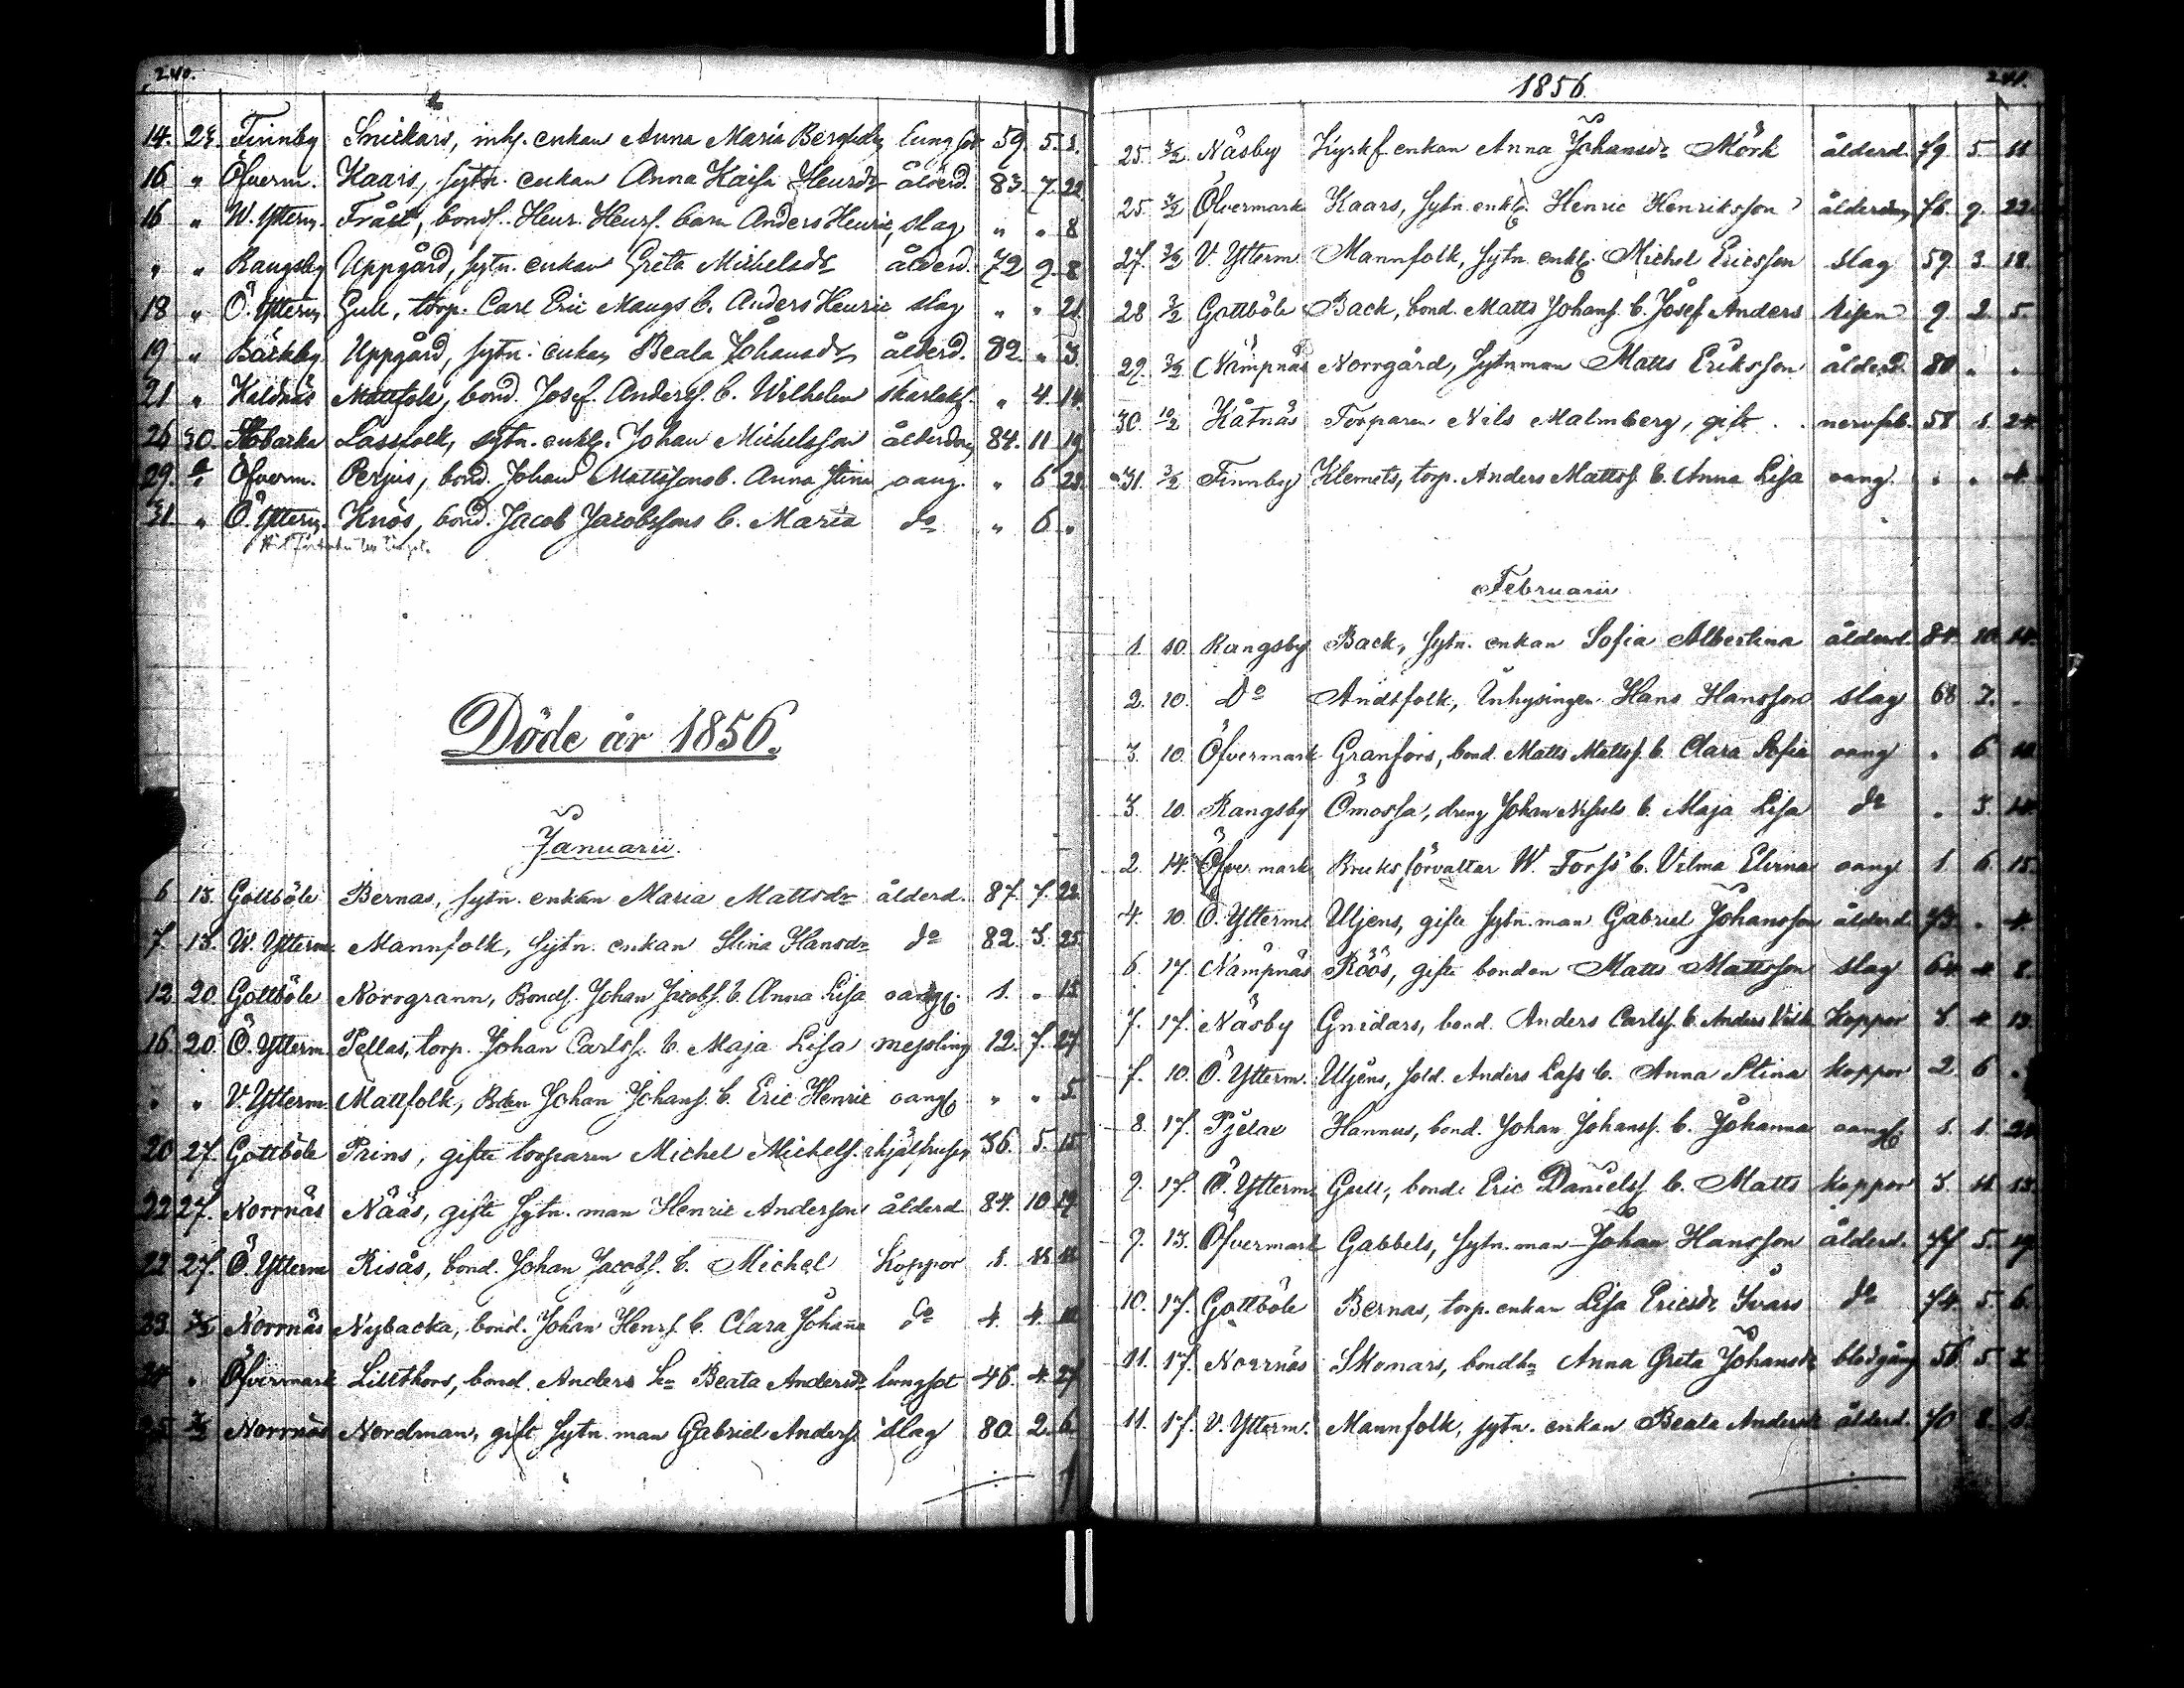 240.
14. 23. Finnby Snickars, inhs. enkan Anna Maria Bergstedt lungsot 59. 5. 1.
16 " Öfverm. Kaars, sytn. enkan Anna Kaisa Henrdr ålderd. 83. 7. 22.
16 " W. Ytterm. Fräst, bonds. Henr. Henrs. barn Anders Henric, slag " " 8
" " Rangsby Uppgård, sytn. enkan Greta Michelsdr ålderd. 72 9. 8
18 " Ö. Ytterm. Gull, torp. Carl Eric Mangs b. Anders Henric slag " " 21.
19 " Bäckby Uppgård, sytn. enkan Beata Johansdr ålderd. 82 " 3
21 " Kaldnäs Mattfolk, bond. Josef Anderss. b. Wilhelm skarlaksf. " 4. 14.
26 30. Åbacka Lassfolk, sytn. enkl. Johan Michelsson ålderdom 84. 11 19.
29. Öfverm. Perjus, bond. Johan Mattssons b. Anna Stina oang. " 6 28.
31. " Ö. Ytterm. Knös, bond. Jacob Jacobssons b. Maria do " 6 "
Döde år 1856.
Januarii.
6 13. Gottböle Bernas, sytn. enkan Maria Mattsdr ålderd. 87. 7. 22.
7 13. W. Ytterm. Mannfolk, sytn. enkan Stina Hansdr do 82. 3. 25.
12 20 Gottböle Norrgrann, Bonds. Johan Jacobs. b. Anna Lisa oang. 1. " 15
16. 20 Ö. Ytterm. Pellas, torp. Johan Carlss. b. Maja Lisa messling 12. 7. 27.
" " V. Ytterm. Mattfolk, Bden Johan Johans. b. Eric Henric oang. " " 5.
20 27. Gottböle Prins, gifte torparen Michel Michels. 36. 5. 15
22 27. Norrnäs Nääs, gifte sytn. man Henric Anderson ålderd 84. 10 19
22 27. Ö. Ytterm Risås, bond. Johan Jacobs. b. Michel Koppor 1. 11 11
23. 3/2 Norrnäs Nybacka, bond. Johan Henrs. b. Clara Johanna do 4. 4. 10
24 " Öfvermark Lillthors, bond. Anders hu Beata Andersdr lungsot 46. 4. 27
25 3/2 Norrnäs Nordman, gift sytn. man Gabriel Anderss. slag 80. 2. 6.
1856. 241.
25. 3/2 Näsby Kyrkf. enkan Anna Johansdr Mörk ålderd. 79. 5. 11
25. 3/2 Öfvermark Kaars, sytn. enkl. Henric Henriksson ålderdom 76. 9. 22.
27. 3/2 V. Ytterm Mannfolk, sytn. enkl. Michel Ericsson slag 59. 3. 18.
28 3/2 Gottböle Back, bond. Matts Johans. b. Josef Anders 9. 2. 5.
29. 3/2 Nämpnäs Norrgård, sytn man Matts Eriksson ålderd. 80 " "
30. 10/2 Kåtnäs Torparen Nils Malmberg, gift . . nervfeb. 58 1. 24.
31. 3/2 Finnby Klemets, torp. Anders Mattss. b. Anna Lisa oang. " " 4
Februarii
1. 10. Rangsby Back, sytn. enkan Sofia Albertina ålderd. 84. 10. 14.
2. 10. Do Andtfolk, Inhysingen Hans Hansson slag 68 7. "
3. 10. Öfvermark Granfors, bond. Matts Mattss. b. Clara Sofia oang " 6
3. 10. Rangsby Ömossa, dreng Johan b. Maja Lisa do " 3.
2. 14. Öfvermark Bruksförvaltar W. Forss b. Vilma Elvina oang 1. 6. 15.
4. 10. Ö. Ytterm. Utjens, gifte sytn. man Gabriel Johansson ålderd. 73. " 4.
6. 17. Nämpnäs Röös, gifte bonden Matts Mattsson slag 64. 4. 8.
7. 17. Näsby Gnidars, bond. Anders Carlss. b. Anders Vilh. Koppor 3. 4. 13.
7. 10. Ö. Ytterm. Utjens, sold. Anders Lass b. Anna Stina koppor 2. 6 "
8. 17. Pjelax Hannus, bond. Johan Johanss. b. Johanna oang. 1. 1. 21.
9. 17. Ö. Ytterm. Gull, bond. Eric Daniels. b. Matts koppor 3. 11. 13.
9. 13. Öfvermark Gabbels, sytn. man Johan Hansson ålderd. 77 5. 19.
10. 17. Gottböle Bernas, torp. enkan Lisa Ericsdr Ivars do 74. 5. 6.
11. 17. Norrnäs Skomars, bondhu Anna Greta Johansdr blodgång 56. 5.
11. 17. V. Ytterm. Mannfolk, sytn. enkan Beata Andersdr ålderd. 70 8. 1.